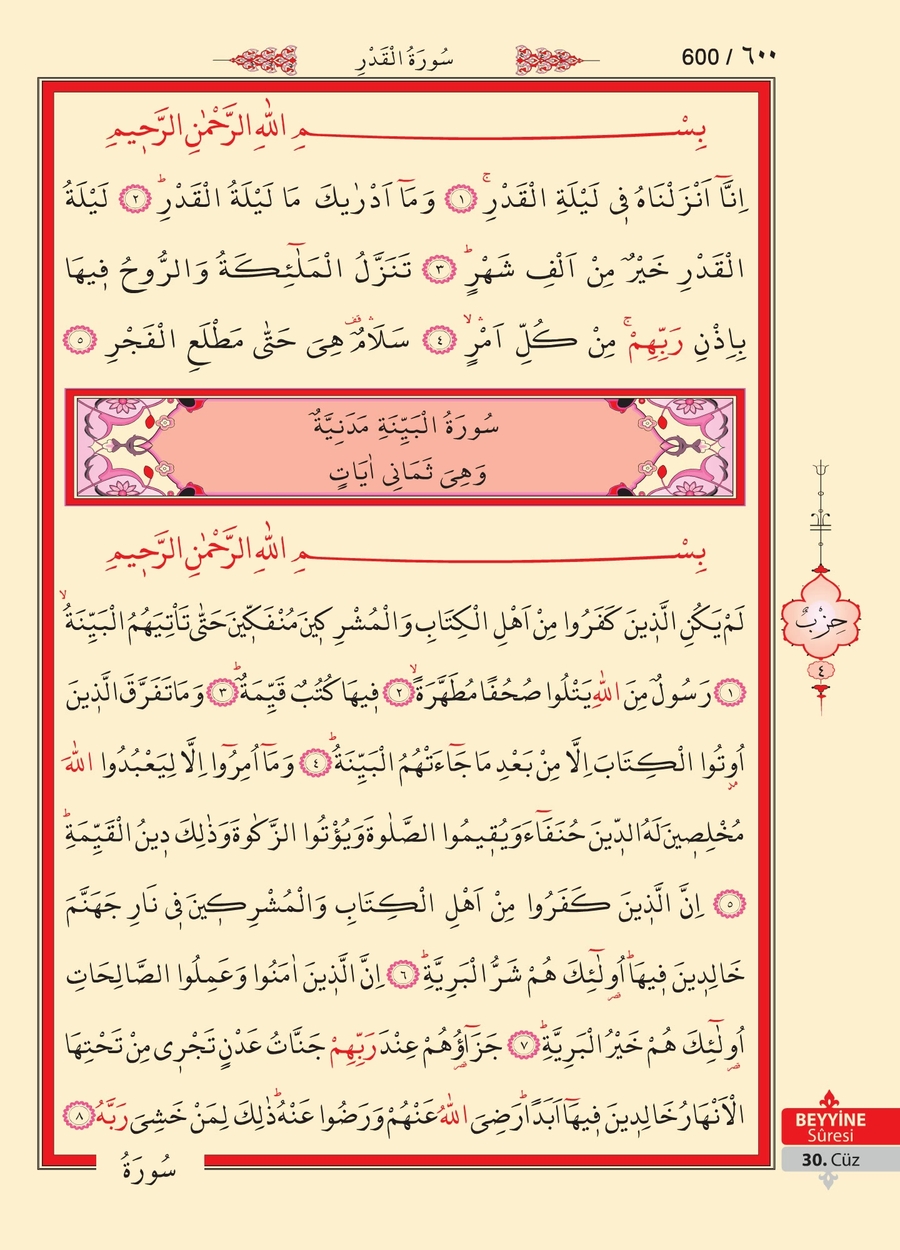 سُورَةُ الْقَدْرِ
600 / ٦٠٠
بِسْمِ اللّٰهِ الرَّحْمٰنِ الرَّحٖيمِ
اِنَّٓا اَنْزَلْنَاهُ فٖى لَيْلَةِ الْقَدْرِۚ ﴿١﴾ وَمَٓا اَدْرٰيكَ مَا لَيْلَةُ الْقَدْرِؕ ﴿٢﴾ لَيْلَةُ
الْقَدْرِ خَيْرٌ مِنْ اَلْفِ شَهْرٍؕ ﴿٣﴾ تَنَزَّلُ الْمَلٰٓئِكَةُ وَالرُّوحُ فٖيهَا
بِاِذْنِ رَبِّهِمْۚ مِنْ كُلِّ اَمْرٍۙۛ ﴿٤﴾ سَلَامٌࣞۛ هِىَ حَتّٰى مَطْلَعِ الْفَجْرِ ﴿٥﴾
سُورَةُ الْبَيِّنَةِ مَدَنِيَّةٌ
وَهِىَ ثَمَانِى اٰيَاتٍ
بِسْمِ اللّٰهِ الرَّحْمٰنِ الرَّحٖيمِ
لَمْ يَكُنِ الَّذٖينَ كَفَرُوا مِنْ اَهْلِ الْكِتَابِ وَالْمُشْرِكٖينَ مُنْفَكّٖينَ حَتّٰى تَاْتِيَهُمُ الْبَيِّنَةُۙ
﴿١﴾ رَسُولٌ مِنَ اللّٰهِ يَتْلُوا صُحُفًا مُطَهَّرَةًۙ ﴿٢﴾ فٖيهَا كُتُبٌ قَيِّمَةٌؕ ﴿٣﴾ وَمَا تَفَرَّقَ الَّذٖينَ
اُو۫تُوا الْكِتَابَ اِلَّا مِنْ بَعْدِ مَا جَٓاءَتْهُمُ الْبَيِّنَةُؕ ﴿٤﴾ وَمَٓا اُمِرُٓوا اِلَّا لِيَعْبُدُوا اللّٰهَ
مُخْلِصٖينَ لَهُ الدّٖينَ حُنَفَٓاءَ وَيُقٖيمُوا الصَّلٰوةَ وَيُؤْتُوا الزَّكٰوةَ وَذٰلِكَ دٖينُ الْقَيِّمَةِؕ
﴿٥﴾ اِنَّ الَّذٖينَ كَفَرُوا مِنْ اَهْلِ الْكِتَابِ وَالْمُشْرِكٖينَ فٖى نَارِ جَهَنَّمَ
خَالِدٖينَ فٖيهَاؕ اُو۬لٰٓئِكَ هُمْ شَرُّ الْبَرِيَّةِؕ ﴿٦﴾ اِنَّ الَّذٖينَ اٰمَنُوا وَعَمِلُوا الصَّالِحَاتِ
اُو۬لٰٓئِكَ هُمْ خَيْرُ الْبَرِيَّةِؕ ﴿٧﴾ جَزَٓاؤُ۬هُمْ عِنْدَ رَبِّهِمْ جَنَّاتُ عَدْنٍ تَجْرٖى مِنْ تَحْتِهَا
الْاَنْهَارُ خَالِدٖينَ فٖيهَٓا اَبَدًاؕ رَضِىَ اللّٰهُ عَنْهُمْ وَرَضُوا عَنْهُؕ ذٰلِكَ لِمَنْ خَشِىَ رَبَّهُ ﴿٨﴾
سُورَةُ
حِزْبٌ
٤
BEYYİNE
Sûresi
30. Cüz